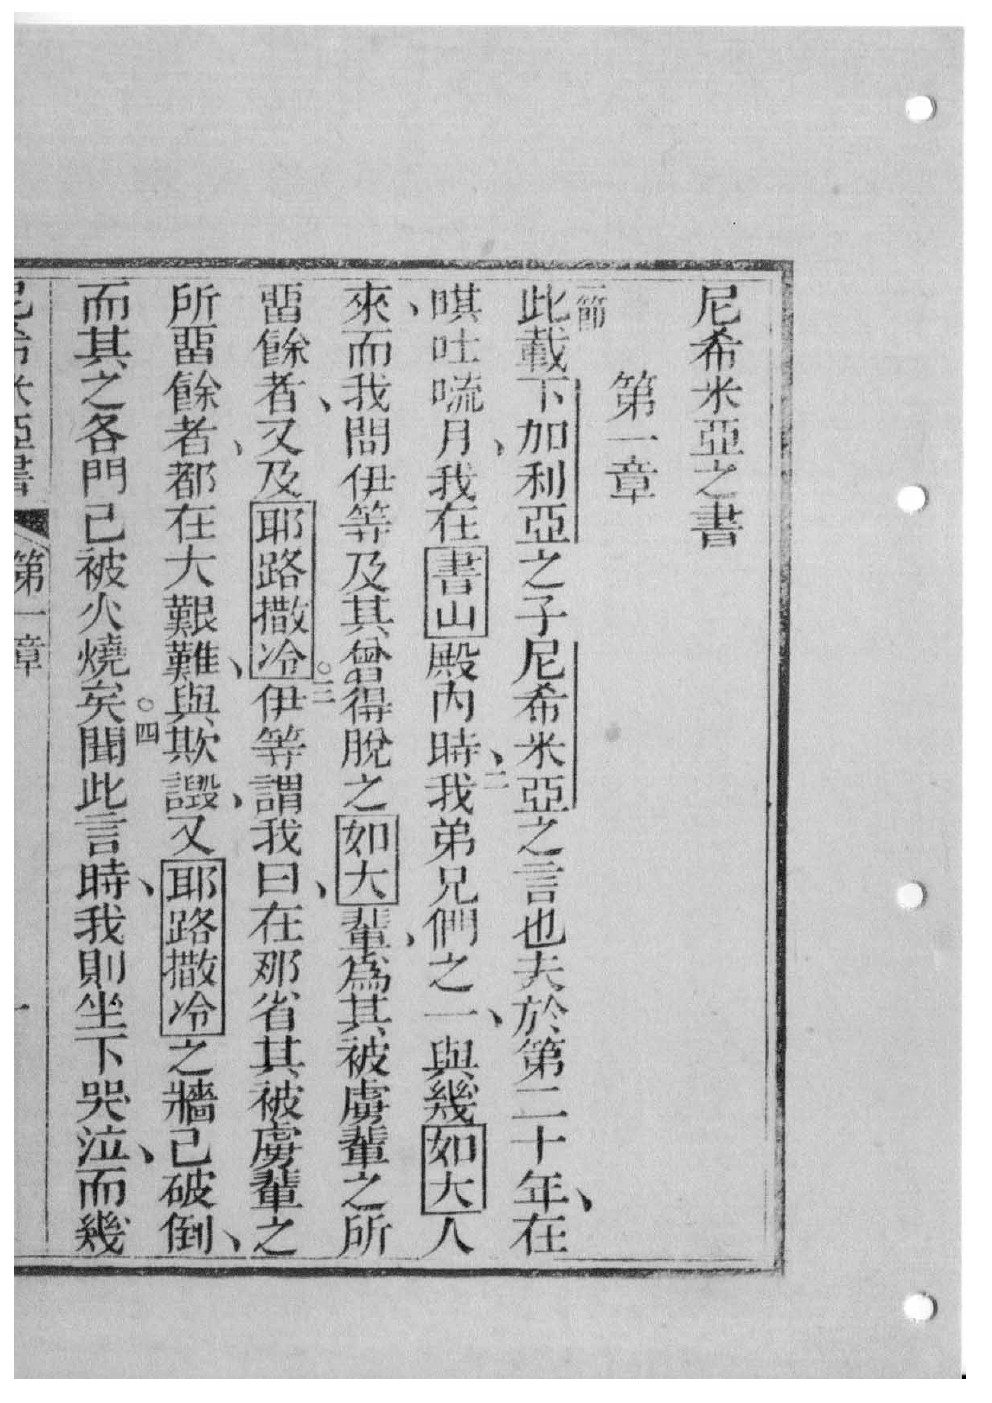 尼希米亞之書
第一章
一節
此載下加利亞之子尼希米亞之言也夫於第二十年、在
唭吐㖇月、我在書山殿內時、二我弟兄們之一、與幾如大人
、來而我問伊等及其曾得脫之如大輩、為其被虜輩之所
畱餘者、又及耶路撒冷○三伊等謂我曰、在那省其被虜輩之
所畱餘者、都在大艱難、與欺譭、又耶路撒冷之牆已破倒、
而其之各門已被火燒矣○四聞此言時、我則坐下哭泣、而幾
尼希米亞書 第一章 一